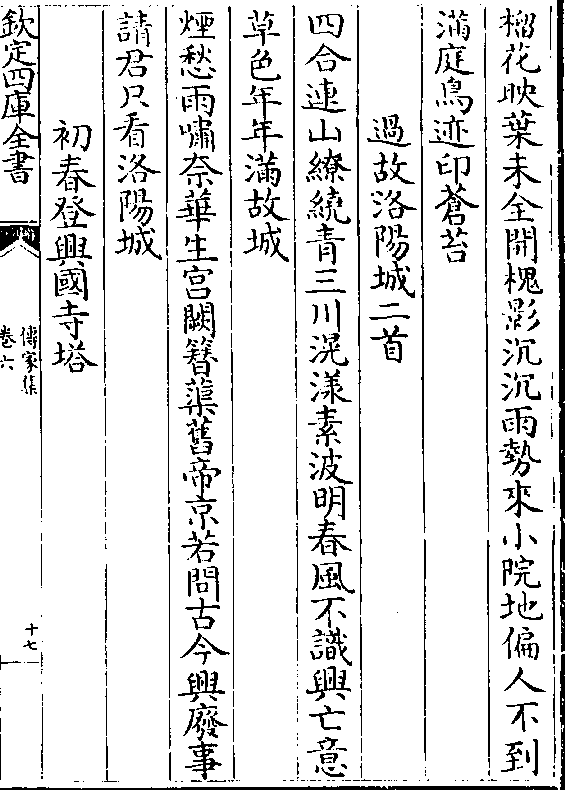 榴花映葉未全開槐影沉沉雨勢來小院地偏人不到
滿庭鳥迹印蒼苔
過故洛陽城二首
四合連山繚繞青三川滉漾素波明春風不識興亡意
草色年年滿故城
煙愁雨嘯奈華生宫闕簪蕖舊帝京若問古今興廢事
請君只看洛陽城
初春登興國寺塔
欽定四庫全書
傳家集
卷六
十七